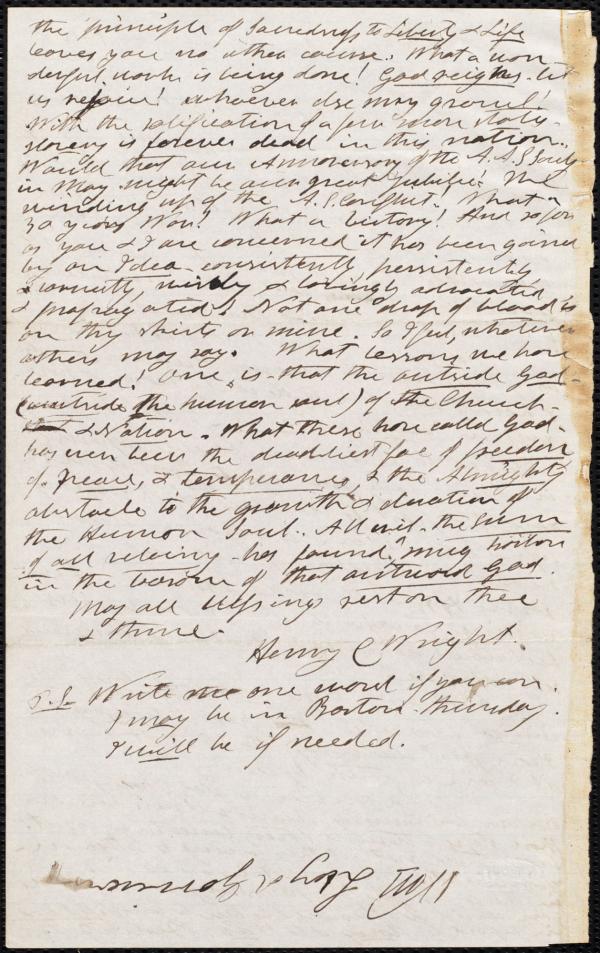 the principle of Sacredness to Liberty & Life
leaves you no other course. What a won
derful work is being done! God reigns. let
us rejoice! whoever else may growl!
With the ratification of a few more States
slavery is forever dead in this nation.
Would that our Anniversary of the A. A. S. Society
in May might be our great Jubilee! The
winding up of the A. S. Conflict. What a
30 years War! What a Victory! And so far
as you & I are concerned it has been gained
by an Idea - consistently, persistently,
earnestly, & lovingly advocated
& propagated! Not one drop of blood is
on thy skirts or mine. So I feel, whatever
others may say. What lessons we have
learned! One is - that the outside God -
(outside the human soul) of the Church -
& Nation. What these have called God -
has ever been the deadliest foe of freedom
of Peace, & temperance, & the Almighty
obstacle to the growth & elevation of
the Human Soul. All evil - the Sum
of all - has found
in the bosom of that outward God.
May all blessings rest on thee
& thine.
Henry C Wright.
P.S. Write me one word if you can.
I may be in Boston thursday.
I will be if needed.